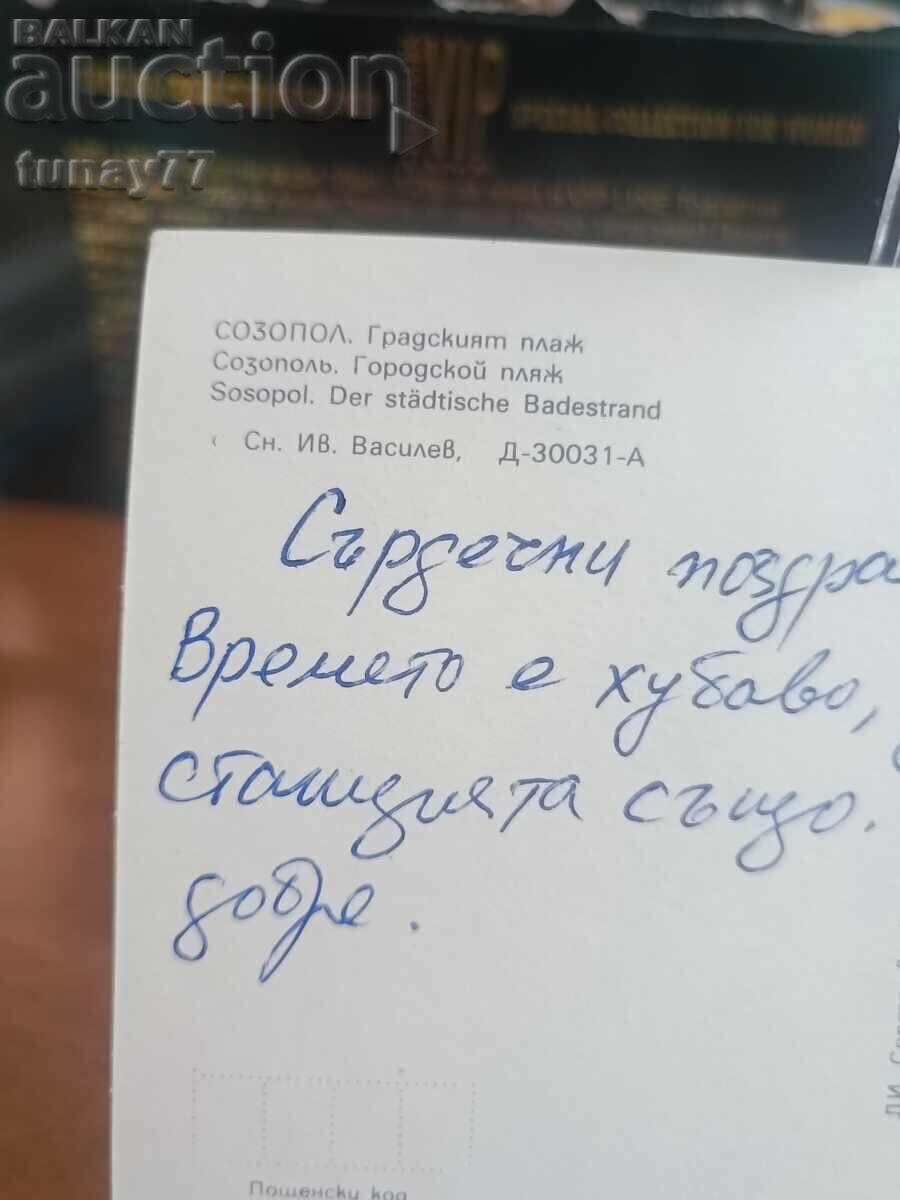 BALKAN
auction
tunay77
СОЗОПОЛ. Градският плаж
Созополь. Городской пляж
Sosopol. Der städtische Badestrand
Сн. Ив. Василев, Д-30031-А
Сърдечни поздра
Времето е хубаво,
станцията също.
добре.
Пощенски код